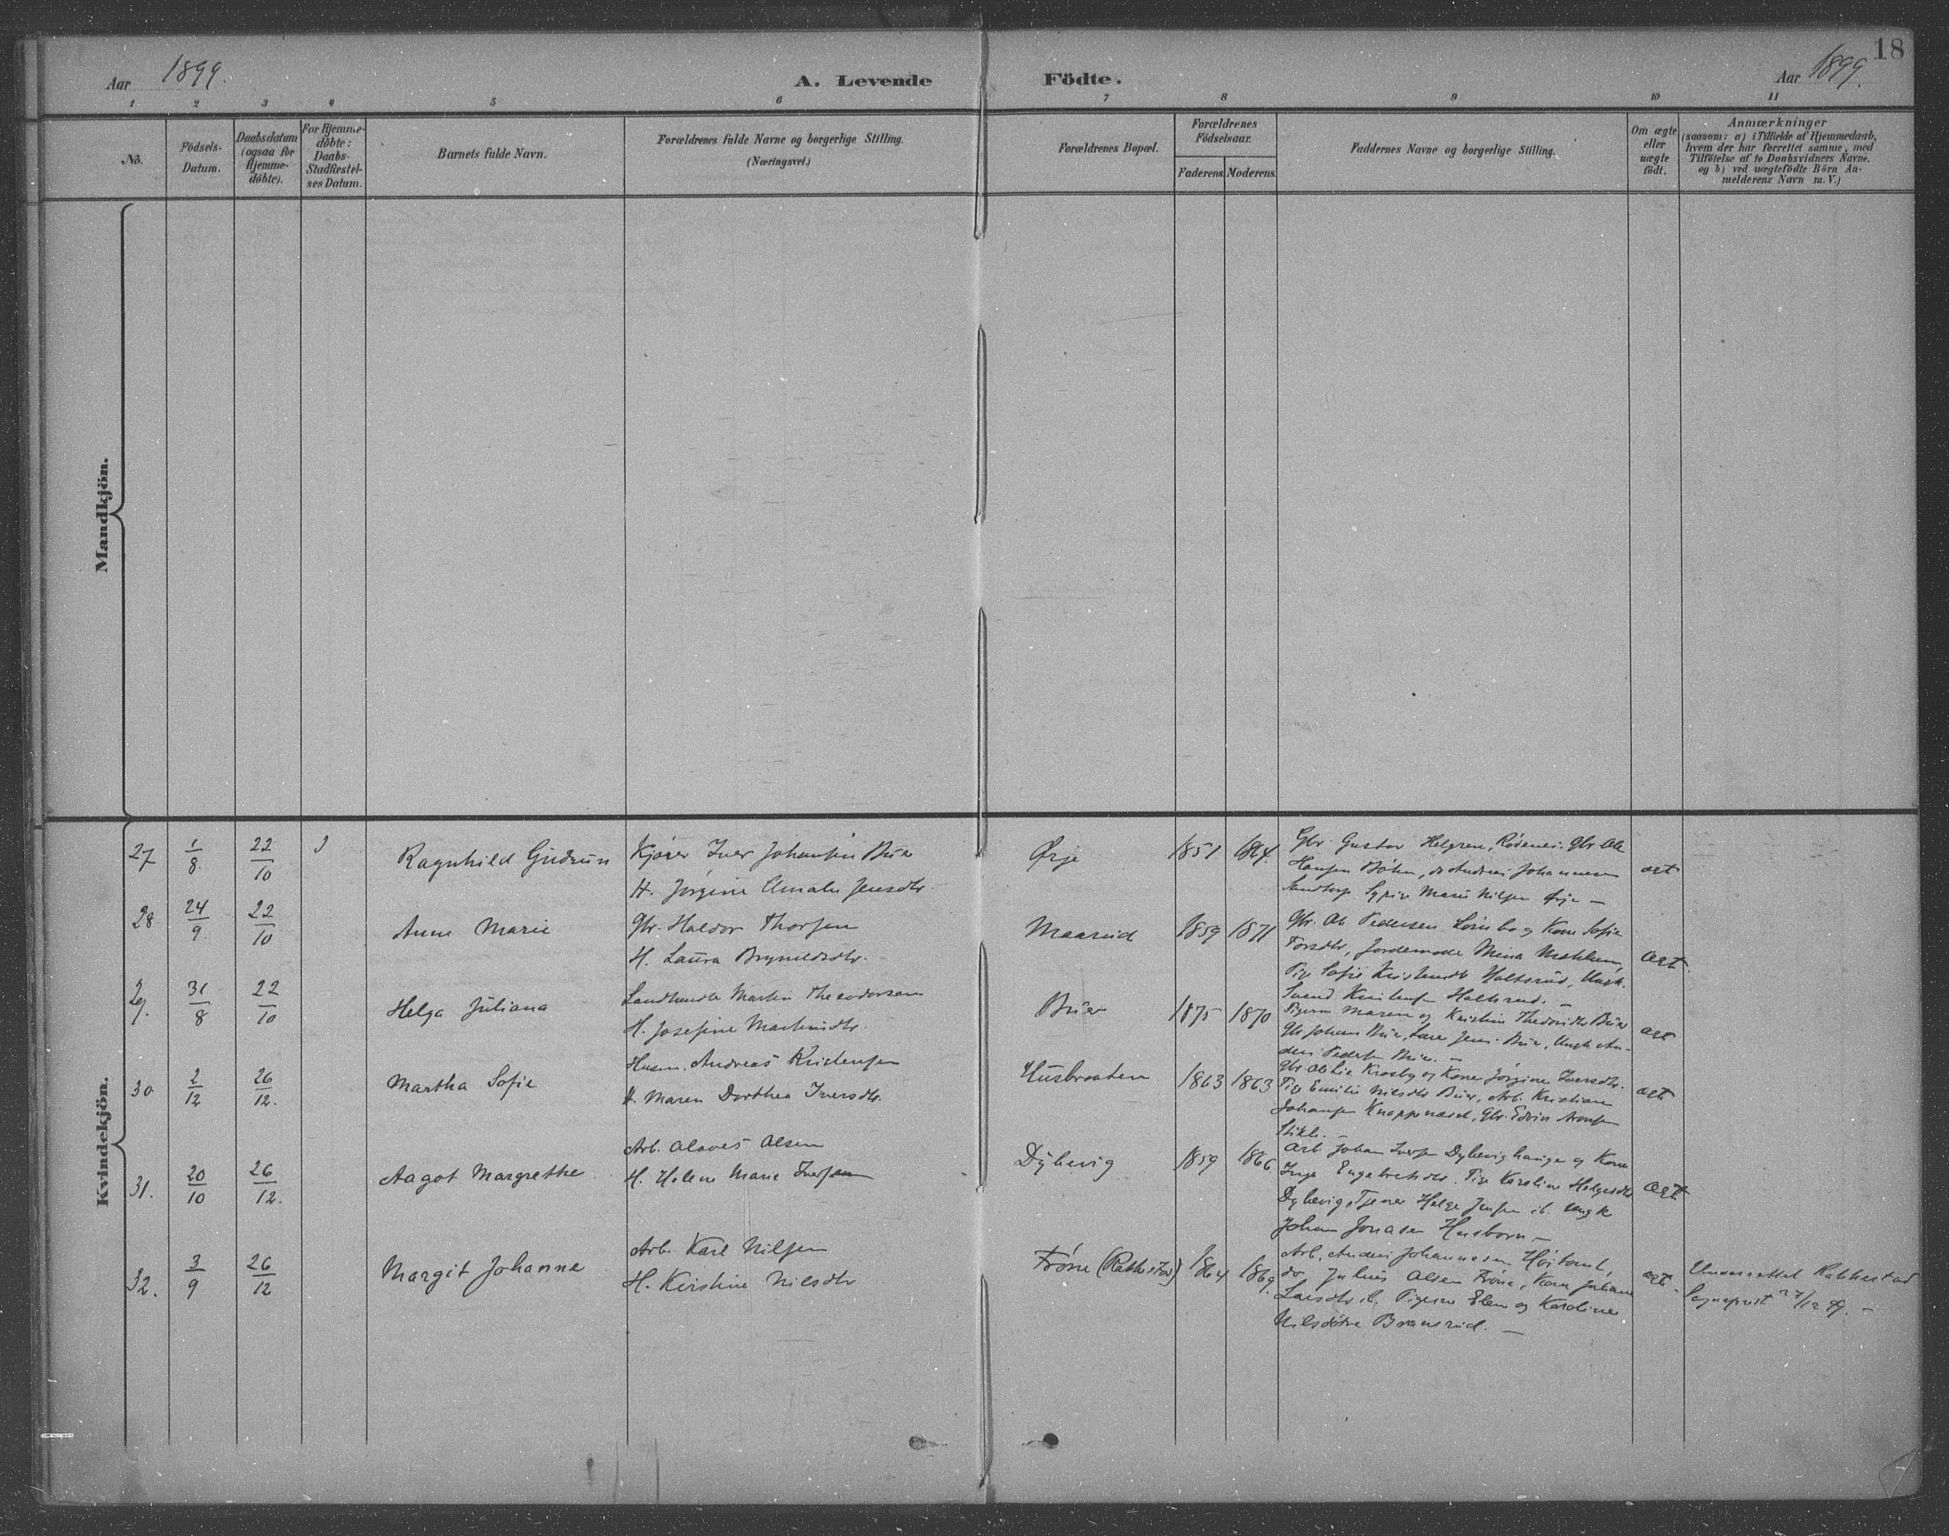 18
Aar 1899.
A. Levende Födte.
Aar 1899.
1 2 3 4 5 6 7 8 9 10 11
No.
Födsels-
Datum.
Daabsdatum
(ogsaa for
Hjemme-
döbte).
For Hjemme-
döbte:
Daabs-
Stadfæstel-
ses Datum.
Barnets fulde Navn.
Forældrenes fulde Navne og borgerlige Stilling.
(Næringsvei.)
Forældrenes Bopæl.
Forældrenes
Födselsaar.
Faderens. Moderens.
Faddernes Navne og borgerlige Stilling.
Om ægte
eller
uægte
födt.
Anmærkninger
(saasom: a) i Tilfælde af Hjemmedaab,
hvem der har forrettet samme, med
Tilföielse af to Daabsvidners Navne,
og b) ved uægtefödte Börn An-
melderens Navn m. V.)
Mandkjön.
Kvindekjön.
27 1/8 22/10 Ragnhild Gudrun
Kjører Iver Johansen Buer
H. Jørgine Amalie Jensdtr.
Ørje 1851 1864.
Gbr. Gustav Helgren, Rødenes. Gbr. Ole
Hansen Bøhn, do Andreas Johannesen
Sandtorp Sypige Marie Nilsen Ørje —
ægt
28 24/9 22/10 Anne Marie
Gbr. Haldor Thorsen
H. Laura Brynildsdtr.
Maarud 1859 1871
Gbr. Ole Pedersen og Kone Sofie
Torsdtr, Jordemoder Mina
Pige Sofie Holtsrud, Ungk.
Svend Holtsrud. —
ægt.
29. 31/8 22/10 Helga Juliana
Landhandler Martin Theodorsen
H. Josefine Martinsdtr.
Buer 1875 1870
Pigerne Maren og Kristine Buer
Gbr Johan Buer, Jens Buer, Ungk. An-
ders Pedersen Buer. —
ægt
30 2/12 26/12. Martha Sofie
Husm. Andreas Kristensen
H. Maren Dorthea Iversdtr.
Husbraaten 1863 1863
Gbr. Ole Lie Krosby og Kone Jørgine Iversdtr.
Pige Emilie Nilsdtr Buer, Arb. Kristian
Johansen Knappernæset, Gbr. Edvin
Stikle. —
ægt
31. 20/10 26/12. Aagot Margrethe
Arb. Olaves Olsen
H. Helene Marie Iversen
Dybevig 1859 1866.
Arb Johan Iversen og Kone
Inge Engebretsdtr. Pige Karoline Helgesdtr
Dybevig, Tjener Helge Jensen ib. Ungk
Johan Jonasen Husborn —
ægt
32. 3/9 26/12 Margit Johanne
Arb. Karl Nilsen
H. Kirstine Nilsdtr
Frøne (Rakkestad) 1864 1869.
Arb. Anders Johannesen Høitomt,
do Julius Olsen Frøne, Kone Juliane
Larsdtr ib. Pigerne Elen og Karoline
Nilsdøtre Brænsrud. —
ægt.
Rakkestad
Sogneprest 27/12 99. —